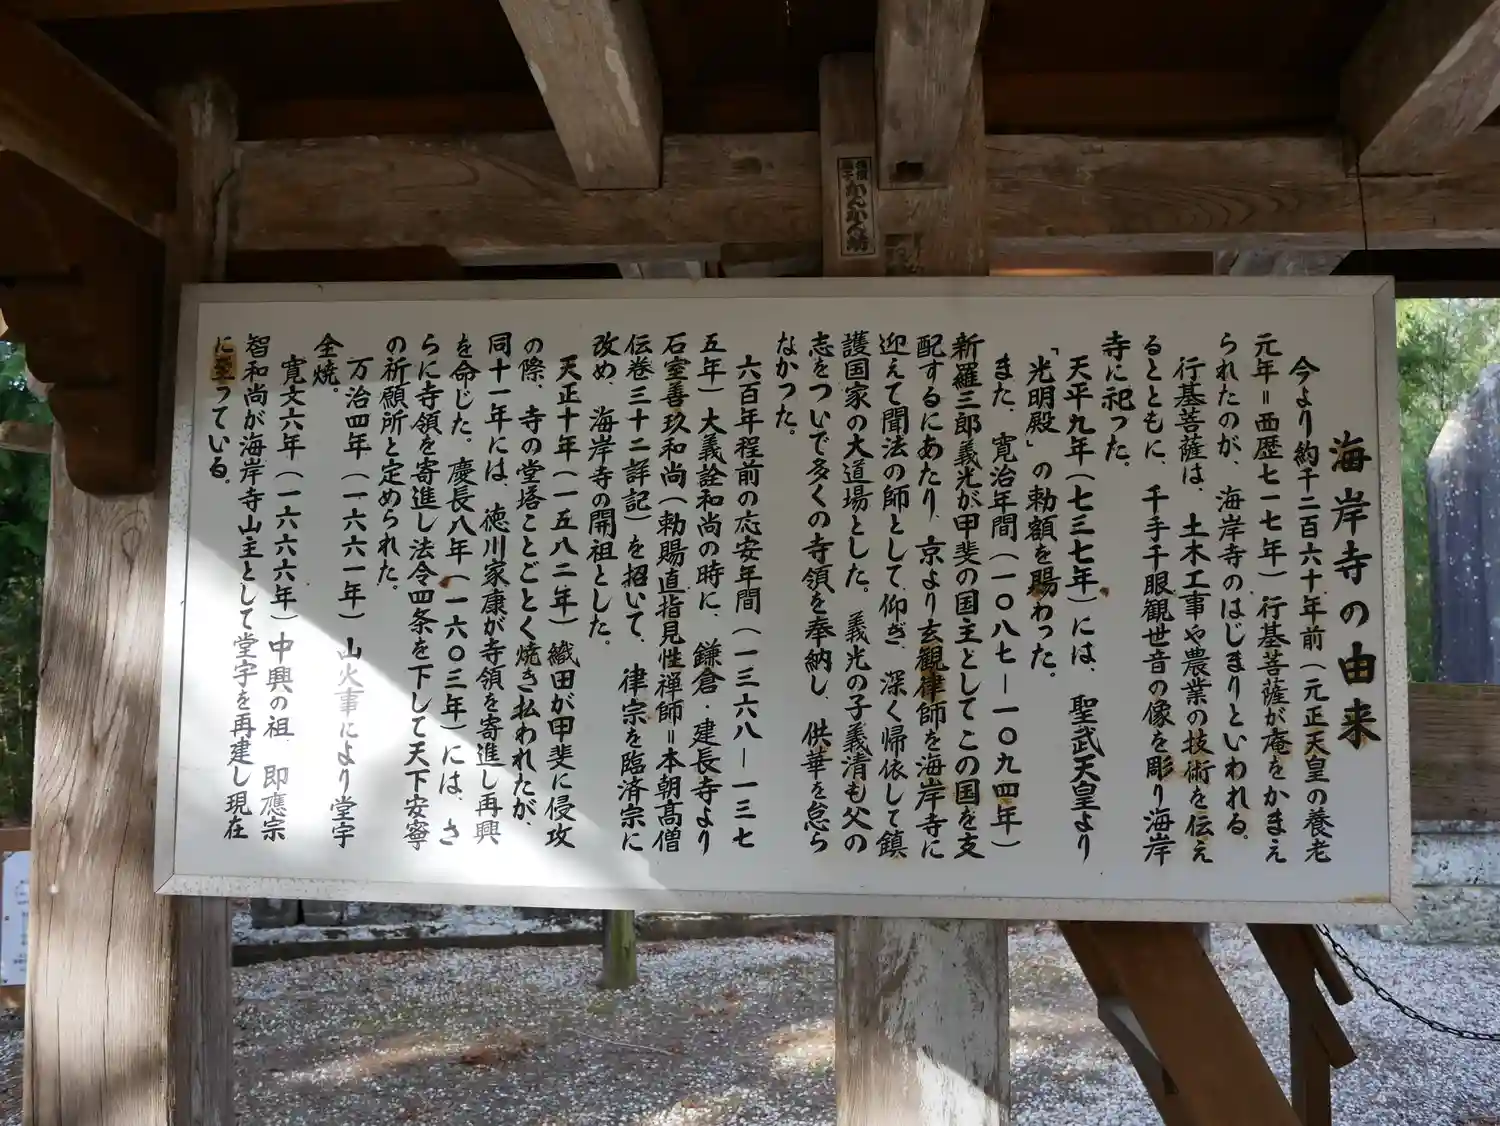 海岸寺の由来
今より約千二百六十年前（元正天皇の養老
元年＝西歴七一七年）行基菩薩が庵をかまえ
られたのが、海岸寺のはじまりといわれる。
行基菩薩は、土木工事や農業の技術を伝え
るとともに、千手千眼観世音の像を彫り海岸
寺に祀った。
天平九年（七三七年）には、聖武天皇より
「光明殿」の勅額を賜わった。
また、寛治年間（一〇八七—一〇九四年）
新羅三郎義光が甲斐の国主としてこの国を支
配するにあたり、京より玄観律師を海岸寺に
迎えて聞法の師として、仰ぎ、深く帰依して鎮
護国家の大道場とした。義光の子義清も父の
志をついで多くの寺領を奉納し、供華を怠ら
なかった。
六百年程前の応安年間（一三六八—一三七
五年）大義詮和尚の時に、鎌倉・建長寺より
石室善玖和尚（勅賜直指見性禅師＝本朝高僧
伝巻三十二詳記）を招いて、律宗を臨済宗に
改め、海岸寺の開祖とした。
天正十年（一五八二年）織田が甲斐に侵攻
の際、寺の堂塔ことごとく焼き払われたが、
同十一年には、徳川家康が寺領を寄進し再興
を命じた。慶長八年（一六〇三年）には、さ
らに寺領を寄進し法令四条を下して天下安寧
の祈願所と定められた。
万治四年（一六六一年）山火事により堂宇
全焼。
寛文六年（一六六六年）中興の祖、即應宗
智和尚が海岸寺山主として堂宇を再建し現在
に至っている。